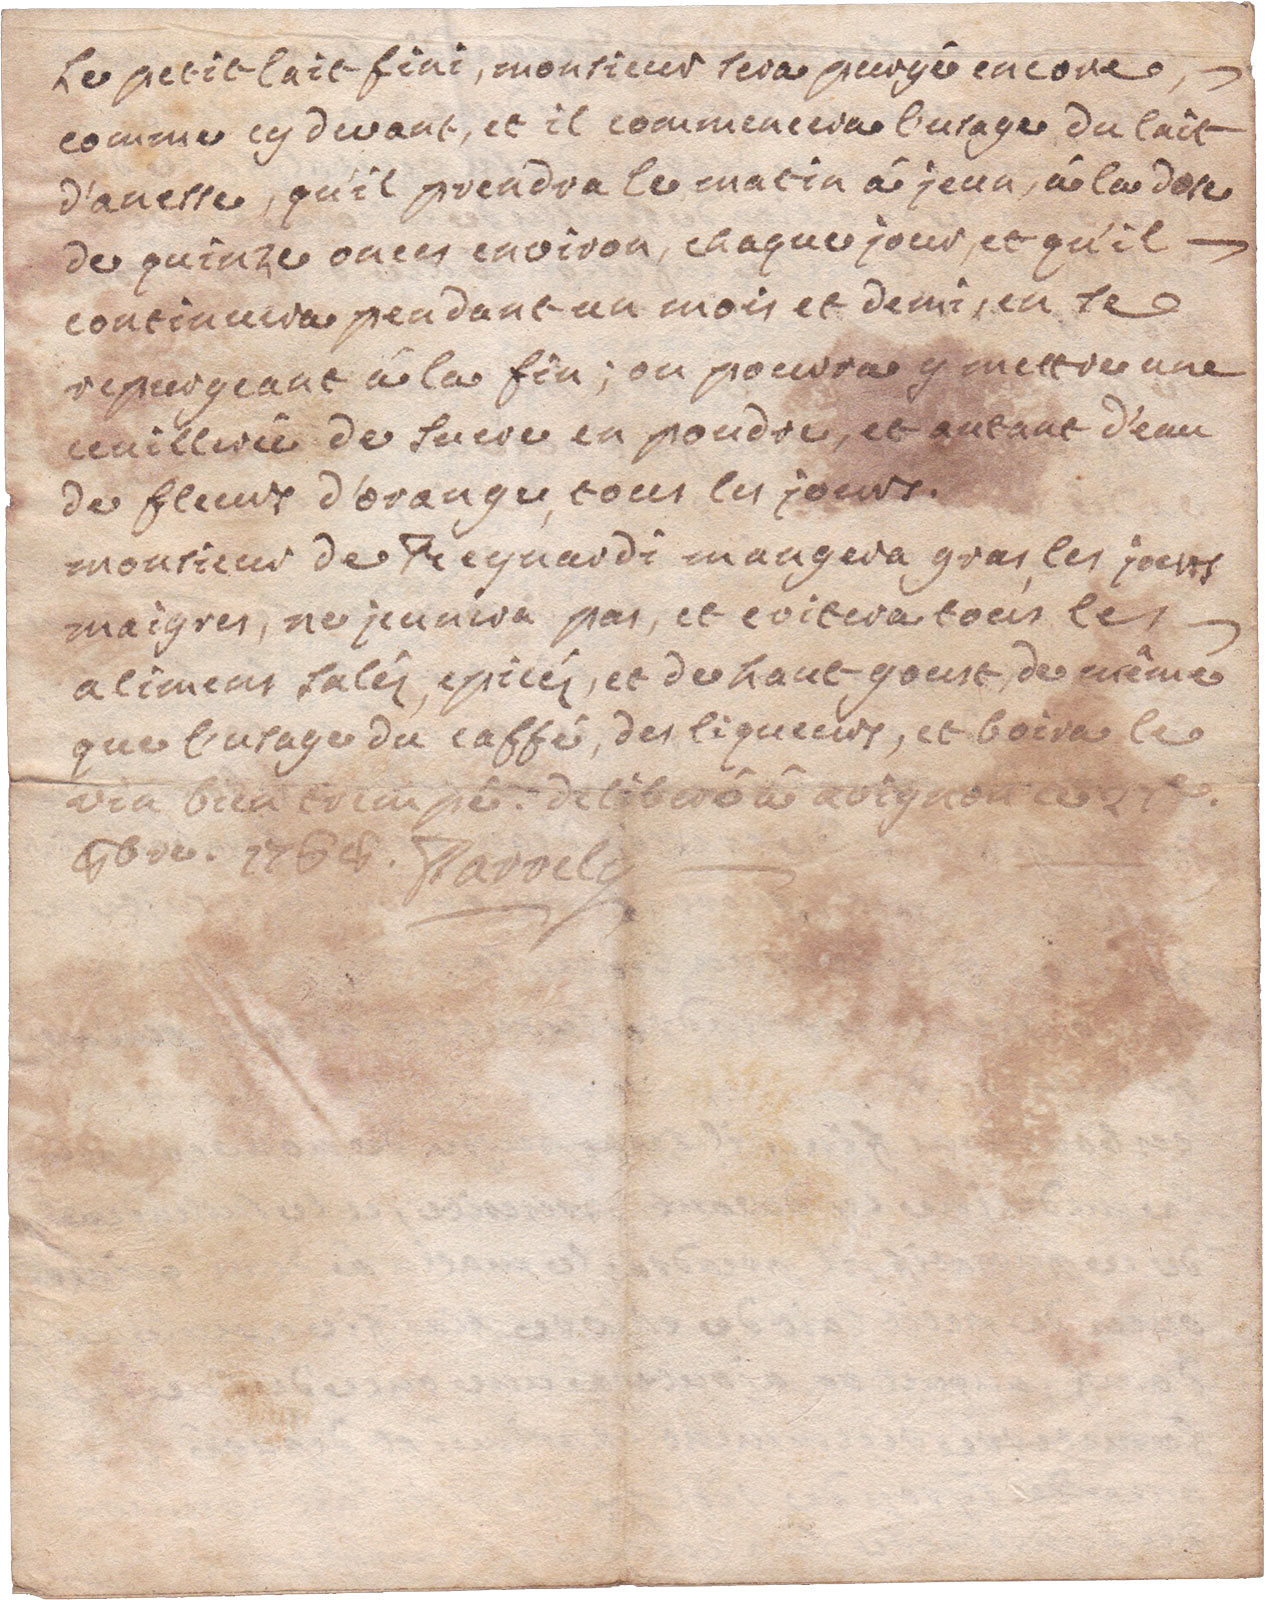 Le petit lait fini, monsieur sera purgé encore,
comme cy devant, et il commencera l'usage du lait
d'anesse, qu'il prendra le matin â jeun, â la dose
de quinze onces environ, chaque jour, et qu'il
continuera pendant un mois et demi, en se
repurgeant â la fin; on pourra y mettre une
cuillerée de sucre en poudre, et autant d'eau
de fleurs d'orange, tous les jours.
monsieur de Reynardi mangera gras, les jours
maigres, ne jeunera pas, et evitera tous les
alimens salés, epicés, et de haut goust, de même
que l'usage du caffé, des liqueurs, et boira le
vin bien trempé. deliberé â avignon ce
bre.